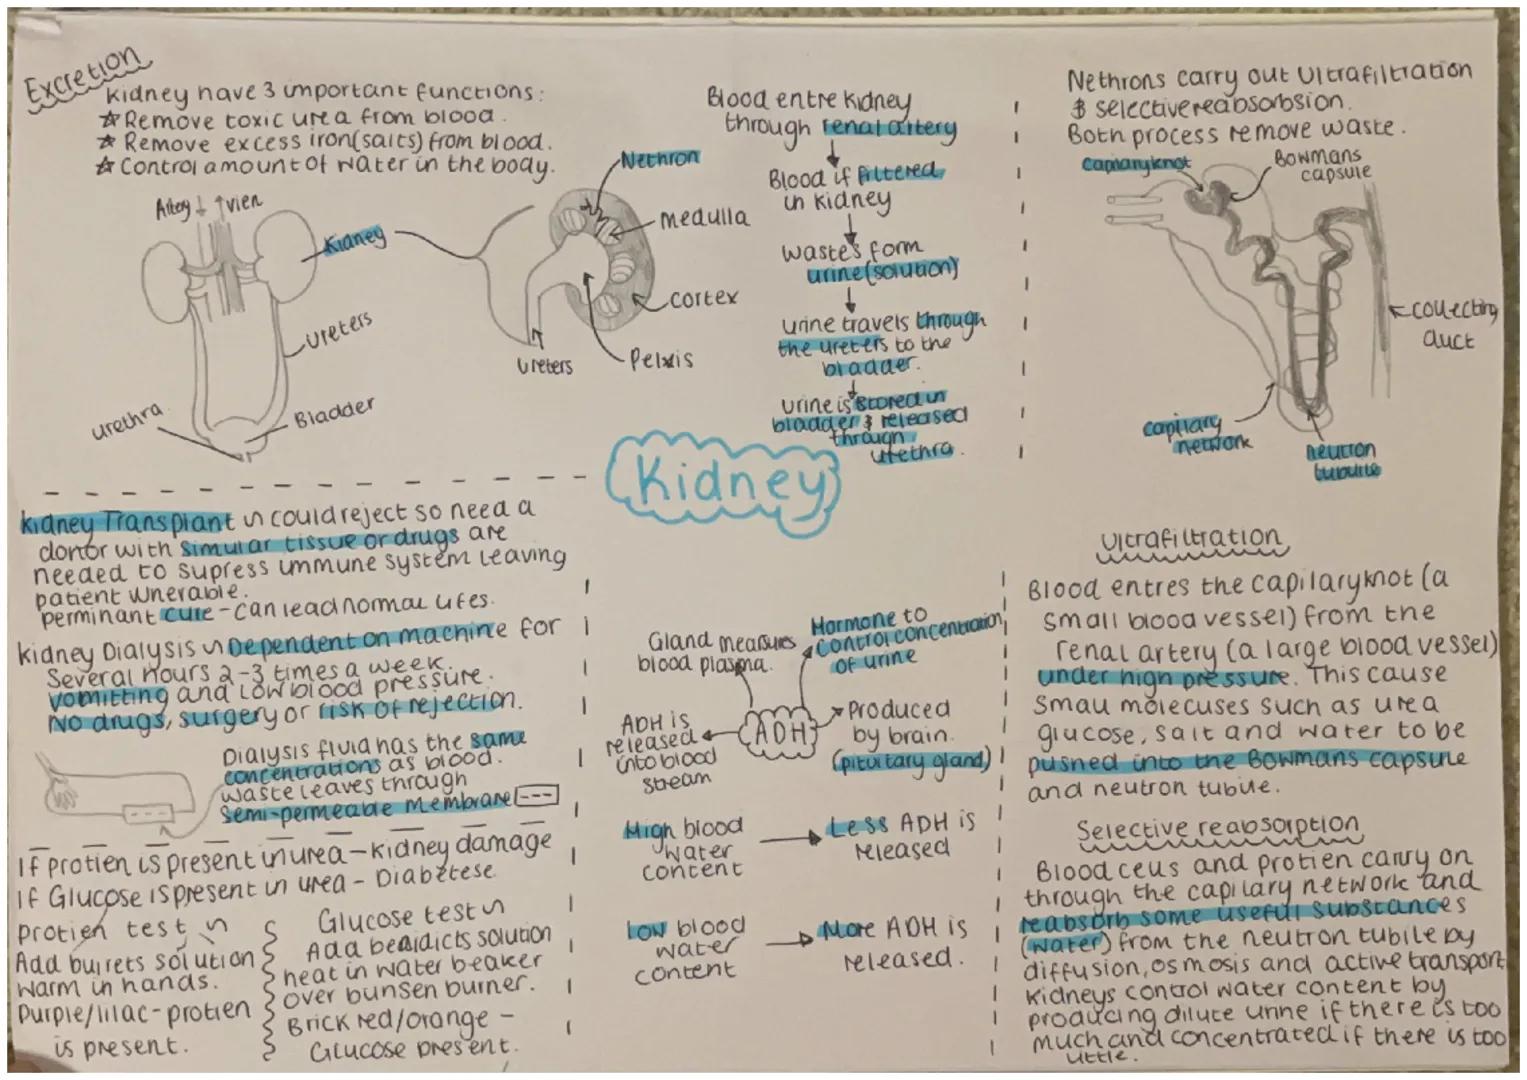 Excretion
Kidney have 3 important functions:
☆ Remove toxic urea from blood.
☆ Remove excess iron(salts) from blood.
☆ Control amount of water in the body.
Artey ↓ ↑ vien
Kidney
ureters
urethra
Bladder
Nethron
medulla
cortex
Pelvis
ureters
Blood entre kidney
through renal artery
Blood if filtered
in kidney
wastes form
urine(solution)
urine travels through
the ureters to the
bladder.
urine is stored in
bladder & released
through
urethra.
Nethrons carry out ultrafiltration
& selective reabsorbsion.
Both process remove waste.
capilary knot
Bowmans
capsule
collecting
duct
capilary
network
neutron
tubule
Kidney
Kidney Transplant could reject so need a
donor with simular tissue or drugs are
needed to supress immune system leaving
patient unerable.
perminant cure - can lead normal lifes.
kidney Dialysis Dependent on machine for
several hours 2-3 times a week.
vomitting and low blood pressure.
No drugs, surgery or risk of rejection.
Dialysis fluid has the same
concentrations as blood.
waste leaves through
semi-permeable membrane
If protien is present in urea - kidney damage
If Glucose is present in urea - Diabetese
protien test
Add buirets solution
warm in hands.
Purple/lilac - protien
is present.
Glucose test
Add beaidicts solution
heat in water beaker
over bunsen burner.
Brick red/orange -
Glucose present.
Gland measures
blood plasma.
Hormone to
control concentration
of urine
ADH
ADH is
released
into blood
stream
Produced
by brain.
(pituitary gland)
High blood
water
content
Less ADH is
released
Low blood
water
content
More ADH is
released.
Ultrafiltration
Blood entres the capilary knot (a
small blood vessel) from the
renal artery (a large blood vessel)
under high pressure. This cause
small molecuses such as urea
glucose, salt and water to be
pushed into the Bowmans capsule
and neutron tubule.
Selective reabsorption
Blood cells and protien carry on
through the capilary network and
reabsorb some useful substances
(water) from the neutron tubile by
diffusion, osmosis and active transport
kidneys control water content by
producing dilute urine if there is too
much and concentrated if there is too
little.